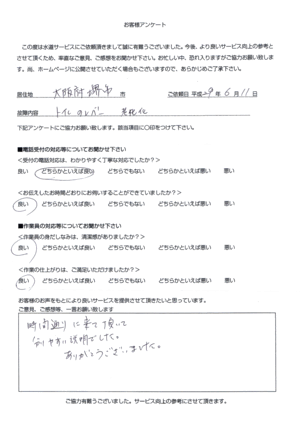 お客様アンケート
この度は水道サービスにご依頼頂きまして誠に有難うございました。今後、より良いサービス向上の参考と
させて頂くため、率直なご意見、ご感想をお聞かせ下さい。お忙しい中、恐れ入りますがご協力お願い致しま
す。尚、ホームページに公開させていただく場合もございますので、あらかじめご了承下さい。
居住地 大阪府堺市 市 ご依頼日 平成29年6月11日
故障内容 トイレのレバー 老朽化
下記アンケートにご協力お願い致します。該当項目に〇印をつけて下さい。
■電話受付の対応等についてお聞かせ下さい
<受付の電話対応は、わかりやすく丁寧な対応でしたか?>
良い どちらかといえば良い どちらでもない どちらかといえば悪い 悪い
<お伝えしたお時間どおりにお伺いすることができていましたか?>
良い どちらかといえば良い どちらでもない どちらかといえば悪い 悪い
■作業員の対応等についてお聞かせ下さい
<作業員の身だしなみは、清潔感がありましたか?>
良い どちらかといえば良い どちらでもない どちらかといえば悪い 悪い
<作業の仕上がりは、ご満足いただけましたか?>
良い どちらかといえば良い どちらでもない どちらかといえば悪い 悪い
お客様のお声をもとにより良いサービスを提供させて頂きたいと思っています。
ご意見、ご感想等、一言お願い致します
時間通りに来て頂いて
分りやすい説明でした。
ありがとうございました。
ご協力有難うございました。サービス向上の参考にさせて頂きます。